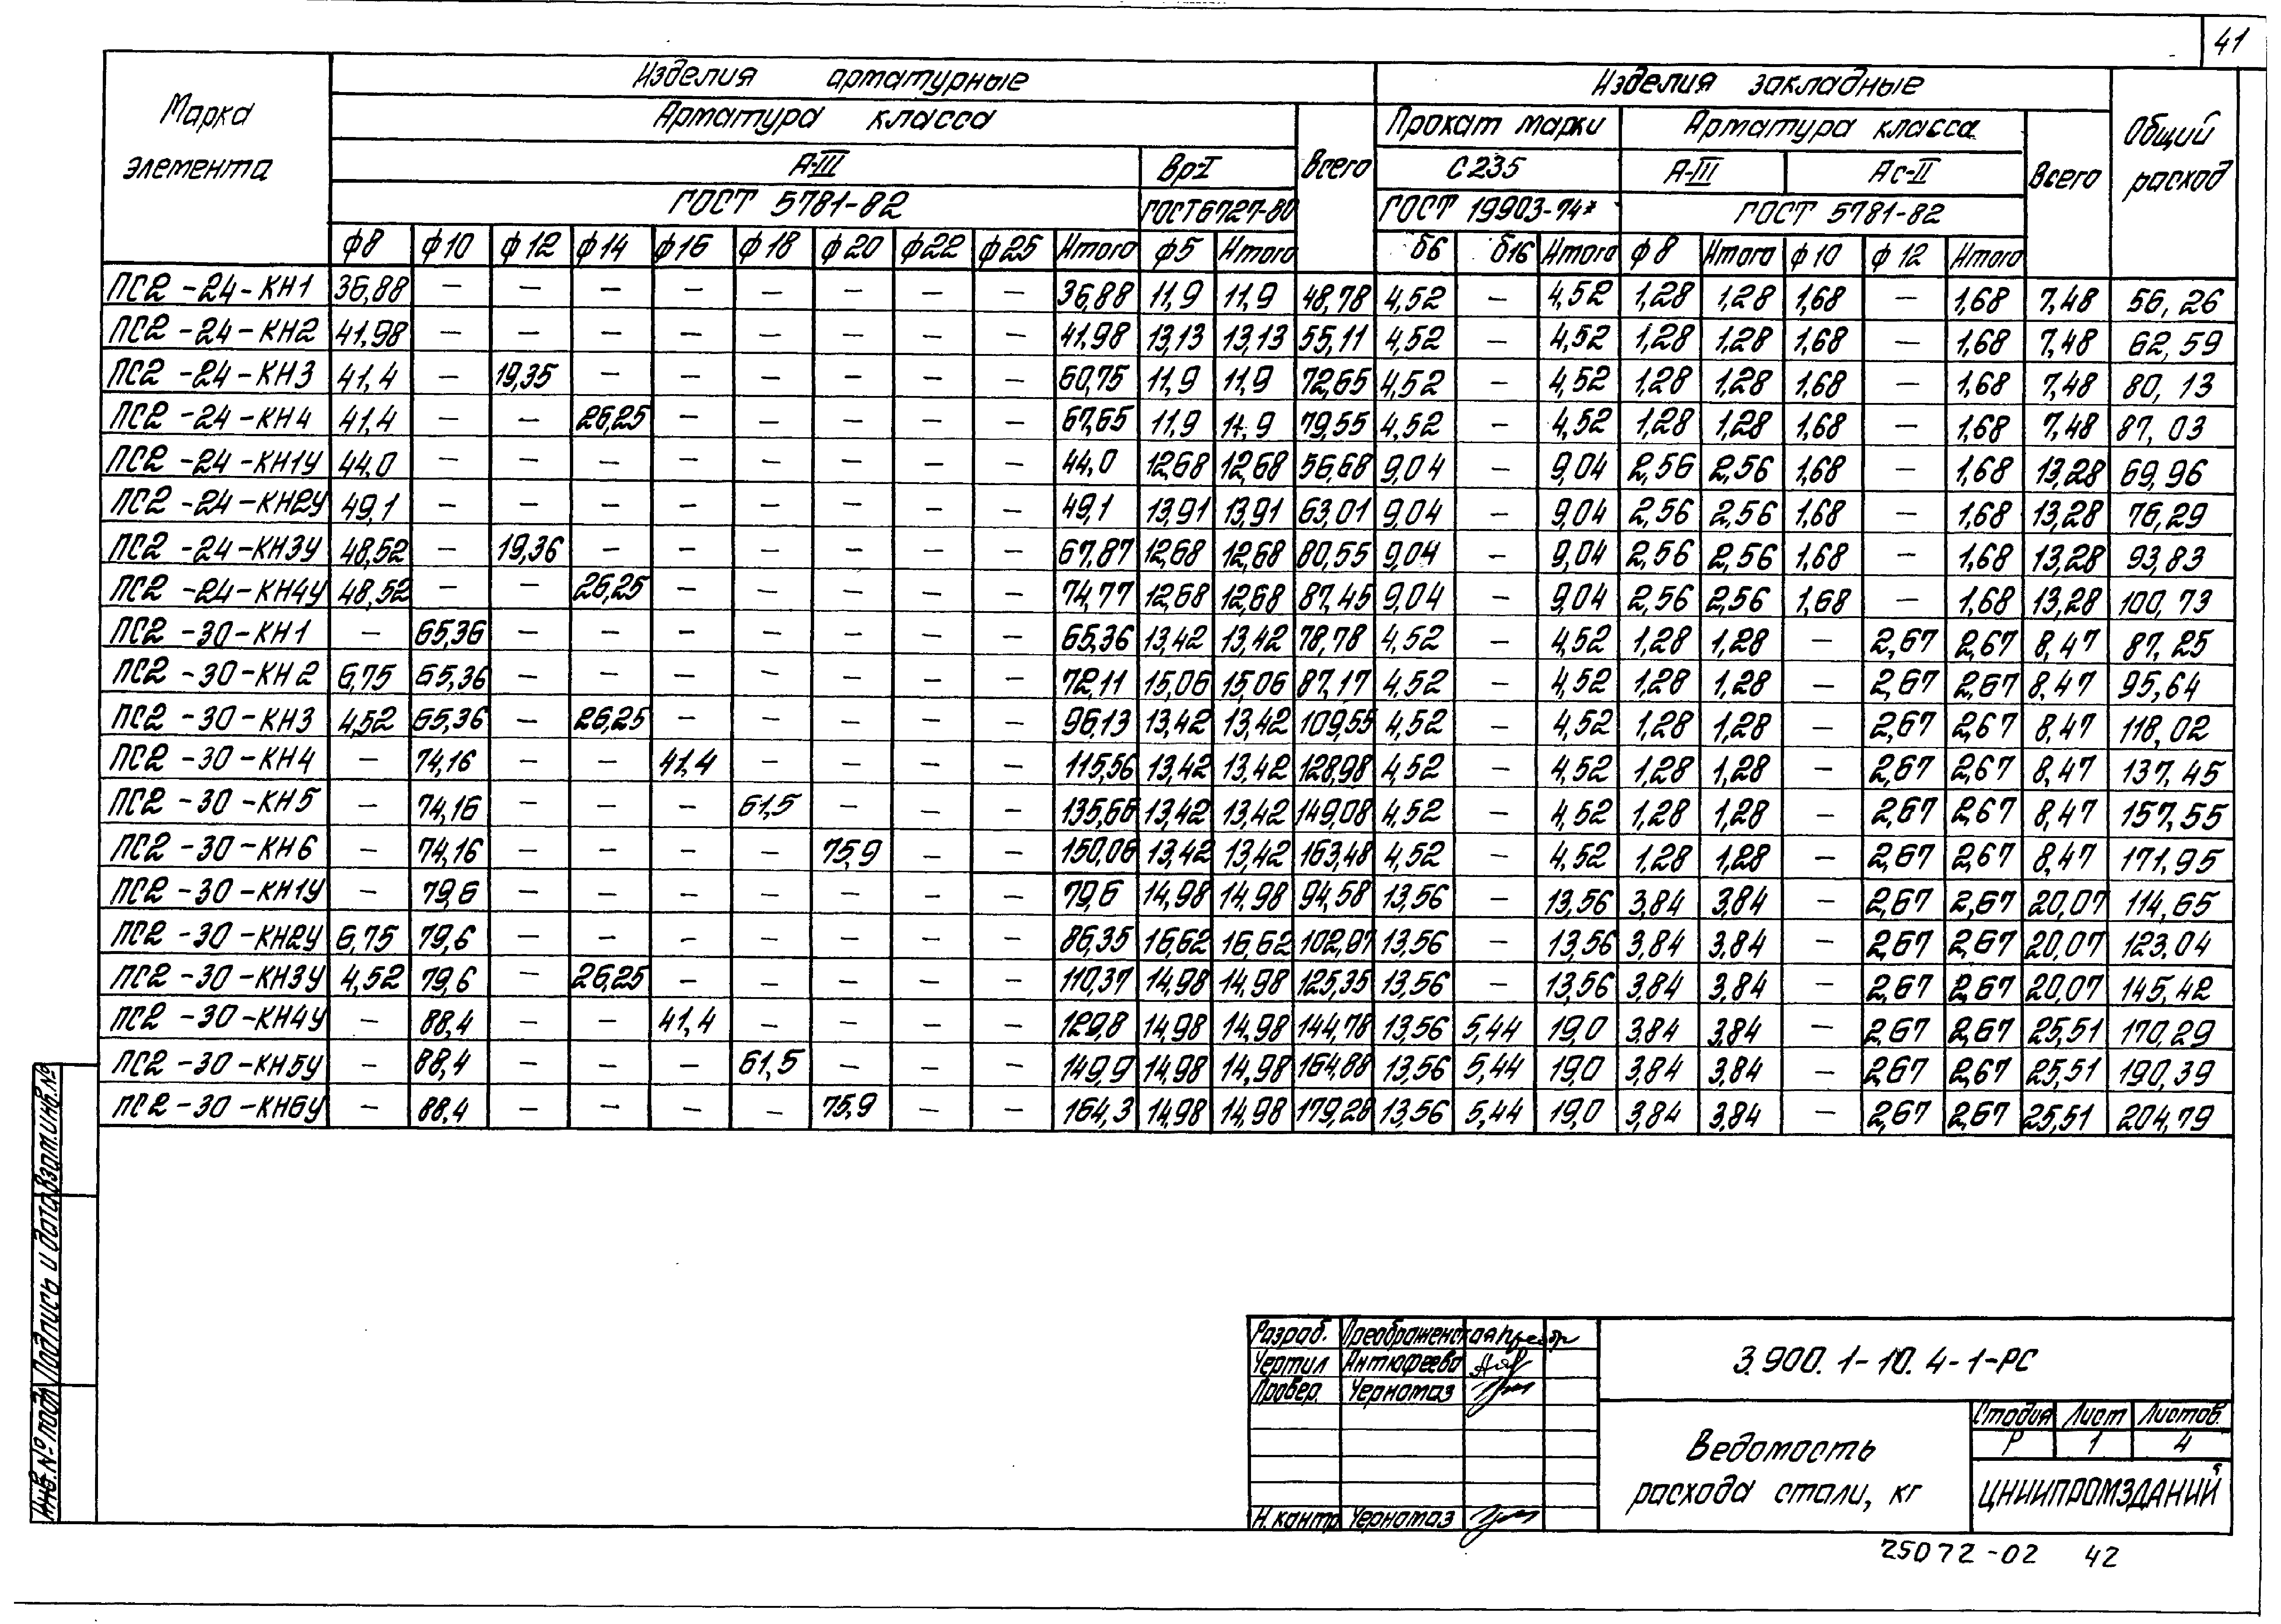 41
Марка элемента
Изделия арматурные
Изделия закладные
Общий расход
Арматура класса
Всего
Прокат марки
Арматура класса
Всего
А-III
Вр-I
С235
А-III
Ас-II
ГОСТ 5781-82
ГОСТ 6727-80
ГОСТ 19903-74*
ГОСТ 5781-82
ф8 ф10 ф12 ф14 ф16 ф18 ф20 ф22 ф25 Итого ф5 Итого δ6 δ16 Итого ф8 Итого ф10 ф12 Итого
ПС2-24-КН1 36,88 – – – – – – – – 36,88 11,9 11,9 48,78 4,52 – 4,52 1,28 1,28 1,68 – 1,68 7,48 56,26
ПС2-24-КН2 41,98 – – – – – – – – 41,98 13,13 13,13 55,11 4,52 – 4,52 1,28 1,28 1,68 – 1,68 7,48 62,59
ПС2-24-КН3 41,4 – 19,35 – – – – – – 60,75 11,9 11,9 72,65 4,52 – 4,52 1,28 1,28 1,68 – 1,68 7,48 80,13
ПС2-24-КН4 41,4 – – 26,25 – – – – – 67,65 11,9 11,9 79,55 4,52 – 4,52 1,28 1,28 1,68 – 1,68 7,48 87,03
ПС2-24-КН1У 44,0 – – – – – – – – 44,0 12,68 12,68 56,68 9,04 – 9,04 2,56 2,56 1,68 – 1,68 13,28 69,96
ПС2-24-КН2У 49,1 – – – – – – – – 49,1 13,91 13,91 63,01 9,04 – 9,04 2,56 2,56 1,68 – 1,68 13,28 76,29
ПС2-24-КН3У 48,52 – 19,36 – – – – – – 67,87 12,68 12,68 80,55 9,04 – 9,04 2,56 2,56 1,68 – 1,68 13,28 93,83
ПС2-24-КН4У 48,52 – – 26,25 – – – – – 74,77 12,68 12,68 87,45 9,04 – 9,04 2,56 2,56 1,68 – 1,68 13,28 100,73
ПС2-30-КН1 – 65,36 – – – – – – – 65,36 13,42 13,42 78,78 4,52 – 4,52 1,28 1,28 – 2,67 2,67 8,47 87,25
ПС2-30-КН2 6,75 65,36 – – – – – – – 72,11 15,06 15,06 87,17 4,52 – 4,52 1,28 1,28 – 2,67 2,67 8,47 95,64
ПС2-30-КН3 4,52 65,36 – 26,25 – – – – – 96,13 13,42 13,42 109,55 4,52 – 4,52 1,28 1,28 – 2,67 2,67 8,47 118,02
ПС2-30-КН4 – 74,16 – – 41,4 – – – – 115,56 13,42 13,42 128,98 4,52 – 4,52 1,28 1,28 – 2,67 2,67 8,47 137,45
ПС2-30-КН5 – 74,16 – – – 61,5 – – – 135,66 13,42 13,42 149,08 4,52 – 4,52 1,28 1,28 – 2,67 2,67 8,47 157,55
ПС2-30-КН6 – 74,16 – – – – 75,9 – – 150,06 13,42 13,42 163,48 4,52 – 4,52 1,28 1,28 – 2,67 2,67 8,47 171,95
ПС2-30-КН1У – 79,6 – – – – – – – 79,6 14,98 14,98 94,58 13,56 – 13,56 3,84 3,84 – 2,67 2,67 20,07 114,65
ПС2-30-КН2У 6,75 79,6 – – – – – – – 86,35 16,62 16,62 102,97 13,56 – 13,56 3,84 3,84 – 2,67 2,67 20,07 123,04
ПС2-30-КН3У 4,52 79,6 – 26,25 – – – – – 110,37 14,98 14,98 125,35 13,56 – 13,56 3,84 3,84 – 2,67 2,67 20,07 145,42
ПС2-30-КН4У – 88,4 – – 41,4 – – – – 129,8 14,98 14,98 144,78 13,56 5,44 19,0 3,84 3,84 – 2,67 2,67 25,51 170,29
ПС2-30-КН5У – 88,4 – – – 61,5 – – – 149,9 14,98 14,98 164,88 13,56 5,44 19,0 3,84 3,84 – 2,67 2,67 25,51 190,39
ПС2-30-КН6У – 88,4 – – – – 75,9 – – 164,3 14,98 14,98 179,28 13,56 5,44 19,0 3,84 3,84 – 2,67 2,67 25,51 204,79
Инв.№ подл. Подпись и дата Взам.инв.№
Разраб. Преображенская
Чертил Антюфеева
Провер. Черномаз
Н.контр. Черномаз
3.900.1-10.4-1-РС
Ведомость
расхода стали, кг
Стадия Лист Листов
Р 1 4
ЦНИИПРОМЗДАНИЙ
25072-02 42